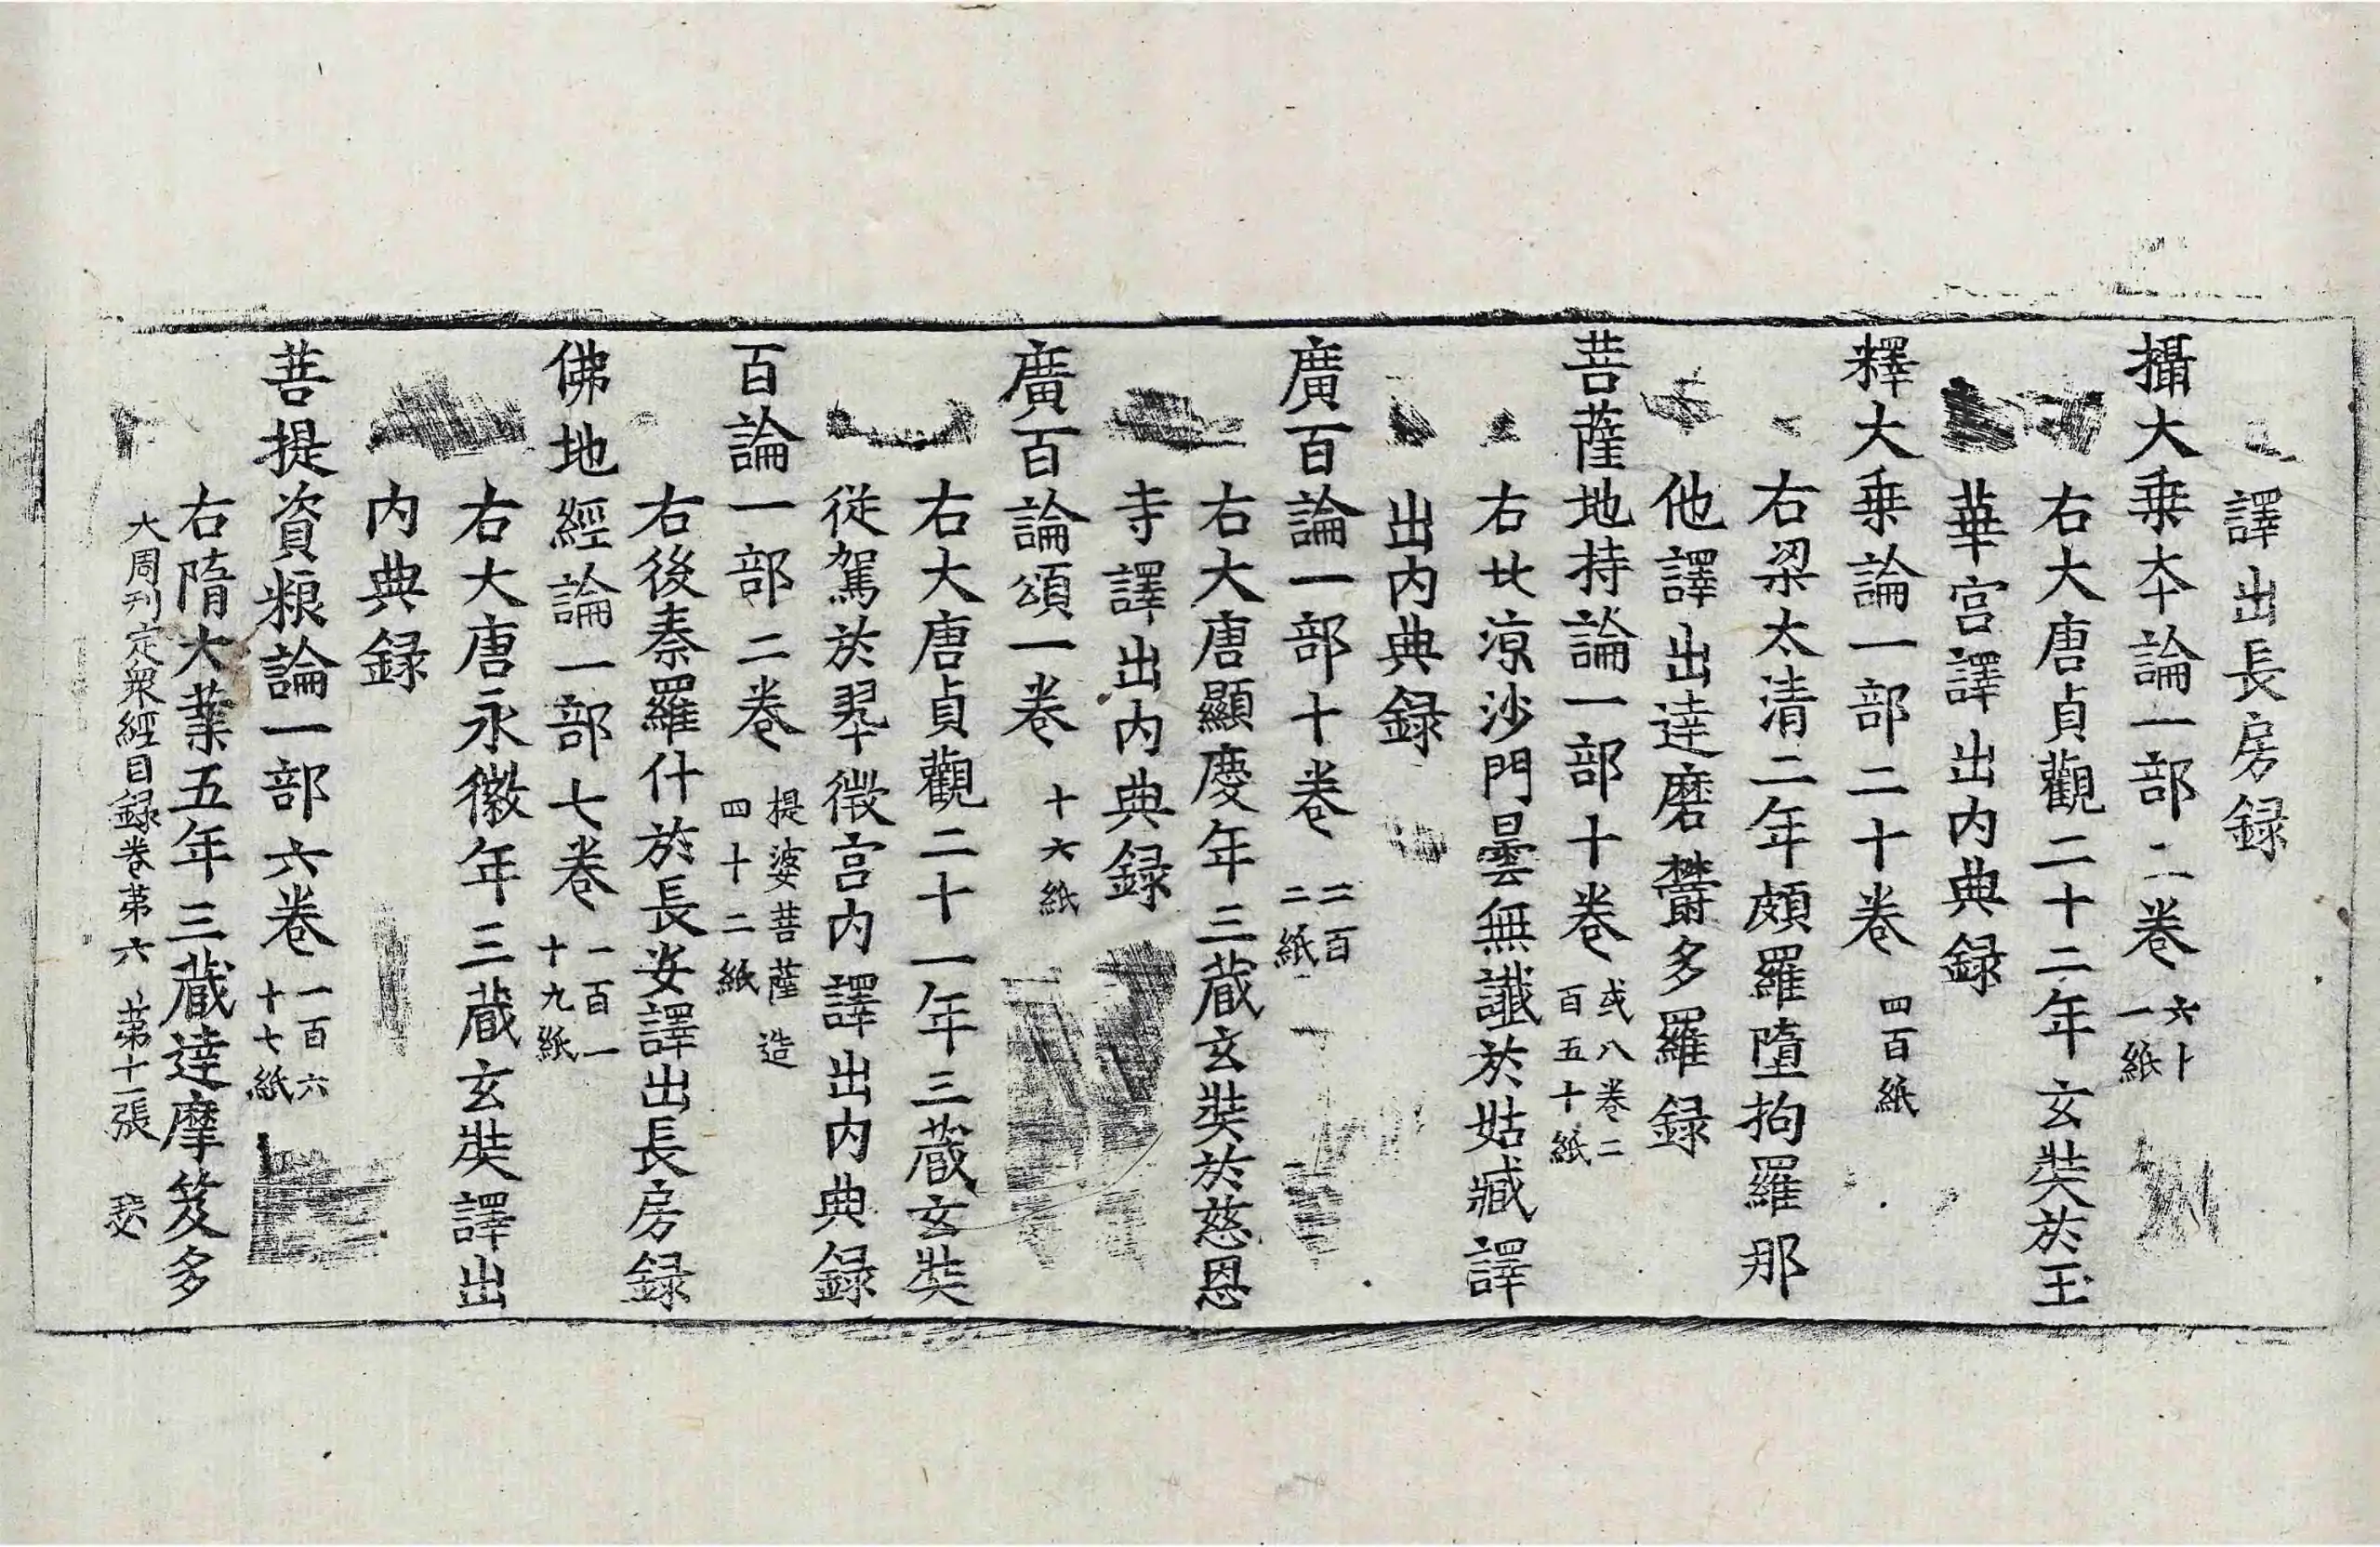 譯出長房録
攝大乗本論一部二卷 六十一紙
右大唐貞觀二十二年玄奘於玉
華宫譯出内典録
釋大乗論一部二十卷 四百紙
右梁太清二年頗羅墮拘羅那
他譯出達磨欝多羅録
菩薩地持論一部十卷 或八卷二百五十紙
右北涼沙門曇無讖於姑臧譯
出内典録
廣百論一部十卷 二百二紙
右大唐顯慶年三藏玄奘於慈恩
寺譯出内典録
廣百論頌一卷 十六紙
右大唐貞觀二十一年三藏玄奘
從駕於翠微宫内譯出内典録
百論一部二卷 提婆菩薩造四十二紙
右後秦羅什於長安譯出長房録
佛地經論一部七卷 一百一十九紙
右大唐永徽年三藏玄奘譯出
内典録
菩提資粮論一部六卷 一百六十七紙
右隋大業五年三藏達摩笈多
大周刊定衆經目録卷第六 第十二張